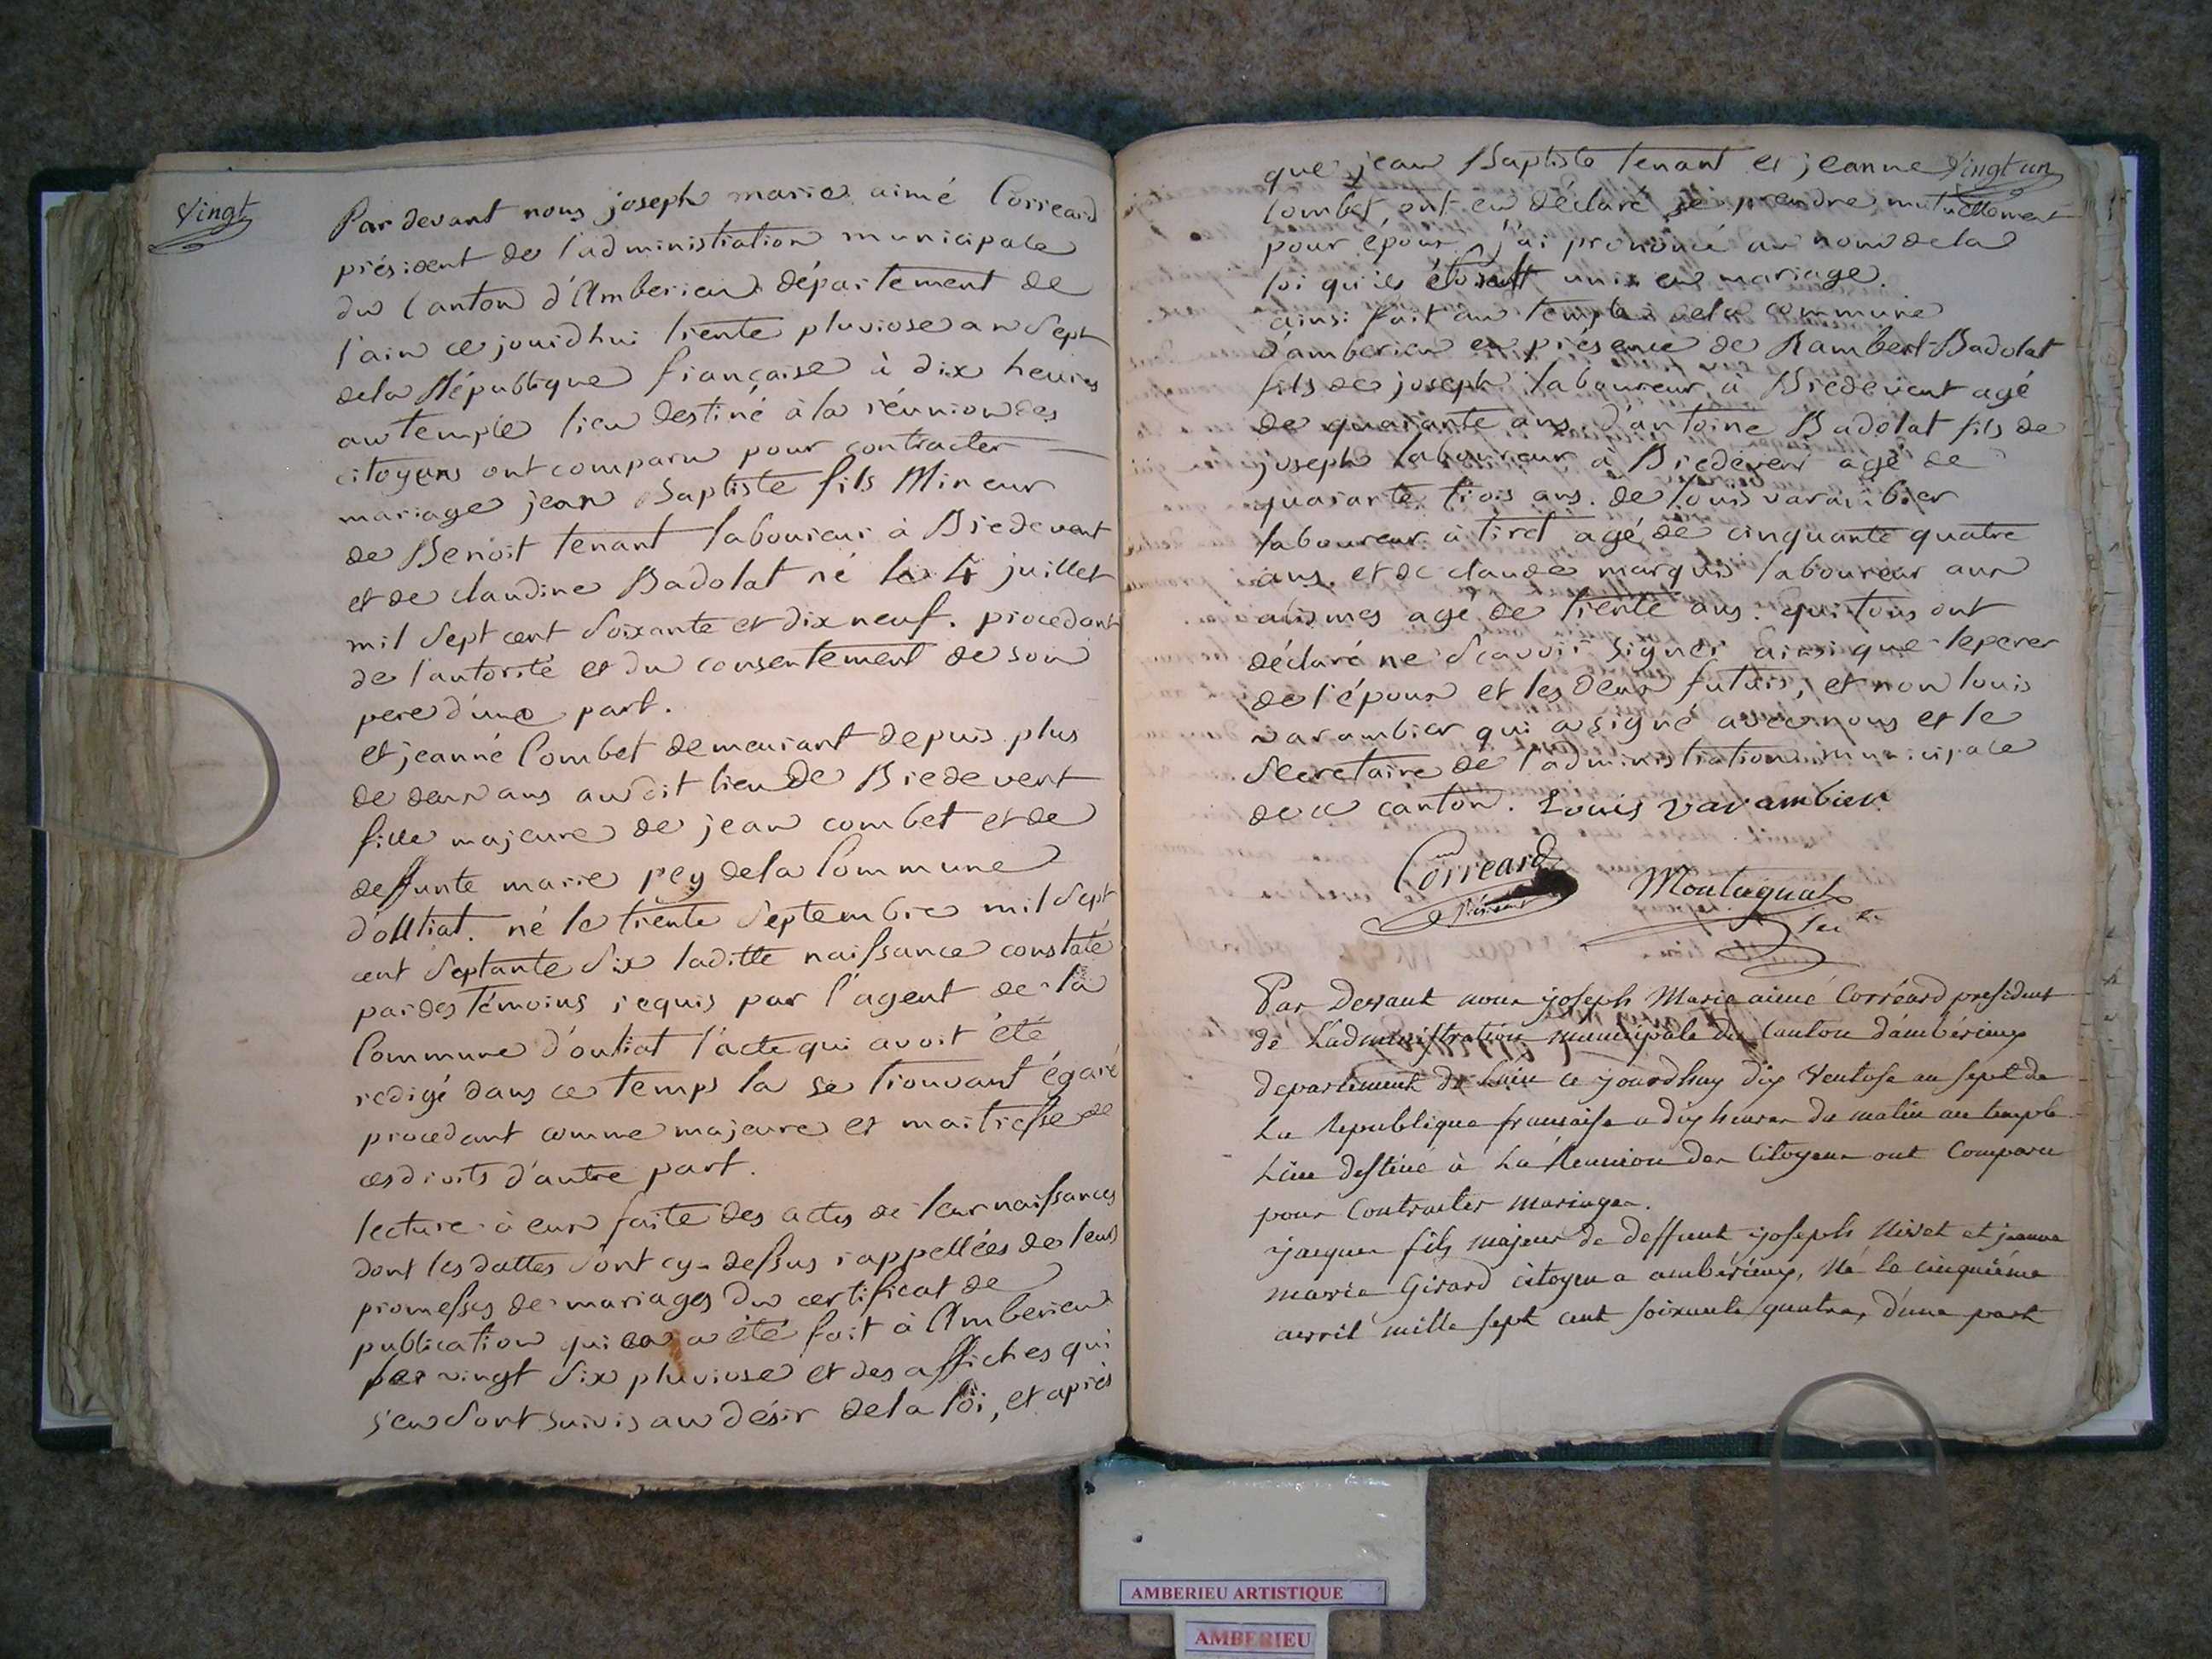 Vingt
Par devant nous joseph marie aimé Correard
président de l'administration municipale
du Canton d'Amberieu département de
l'ain ce jourdhui trente pluviose an Sept
dela République française à dix heures
au temple lieu destiné à la réunion des
citoyens ont comparu pour contracter
mariage jean Baptiste fils Mineur
de Benoit tenant laboureur à Bredevent
et de claudine Badolat né le 4 juillet
mil Sept cent Soixante et dix neuf. procedant
de l'autorité et du consentement de son
pere d'une part.
et jeanne Combet demeurant depuis plus
de deux ans au dit lieu De Bredevent
fille majeure de jean combet et de
deffunte marie pey dela Commune
d'oûtriat. né le trente Septembre mil Sept
cent Septante Six laditte naissance constaté
par des témoins requis par l'agent de la
Commune d'outriat l'acte qui avoit été
redigé dans ce temps la se trouvant égaré
procedant comme majeure et maitresse de
ces droits d'autre part.
lecture à eux faite des actes de leur naissances
dont les dattes sont cy-dessus rappellées de leurs
promesses de mariages du certificat de
publication qui en a été fait à Amberieu
le vingt Six pluviose et des affiches qui
s'en Sont suivis au désir de la loi, et après
Vingt un
que jean Baptiste tenant et jeanne
Combet, ont eu déclaré se prendre mutuellement
pour époux, j'ai prononcé au nom dela
loi qu'ils étoient unis en mariage.
ainsi fait au temple dela commune
d'amberieu en présence de Rambert Badolat
fils de joseph laboureur à Bredevent agé
de quarante ans. d'antoine Badolat fils de
joseph laboureur à Bredevent agé de
quarante trois ans. de louis varambier
laboureur à tiret agé de cinquante quatre
ans. et de claude marquis laboureur aux
abismes agé de trente ans. qui tous ont
déclaré ne Scavoir signer ainsi que le perer
de l'époux et les deux futurs, et non louis
varambier qui a signé avec nous et le
Secretaire de l'administration municipale
de ce canton. Louis varambier
Correard
Président
Montagnat
Sec.re
Par Devant nous joseph Marie aimé Corréard president
de Ladministration municipale du Canton d'ambérieux
departement de Lain ce jourdhuy dix Ventose an sept de
La Republique française a dix heures du matin au temple
Lieu destiné à La Reunion des Citoyens ont Comparu
pour Contracter mariages.
jacques fils majeur de deffunt joseph Nivet et jeanne
marie Girard citoyen a ambérieux, Né le cinquième
avril mille sept cent soixante quatre, d'une part
AMBERIEU ARTISTIQUE
AMBERIEU